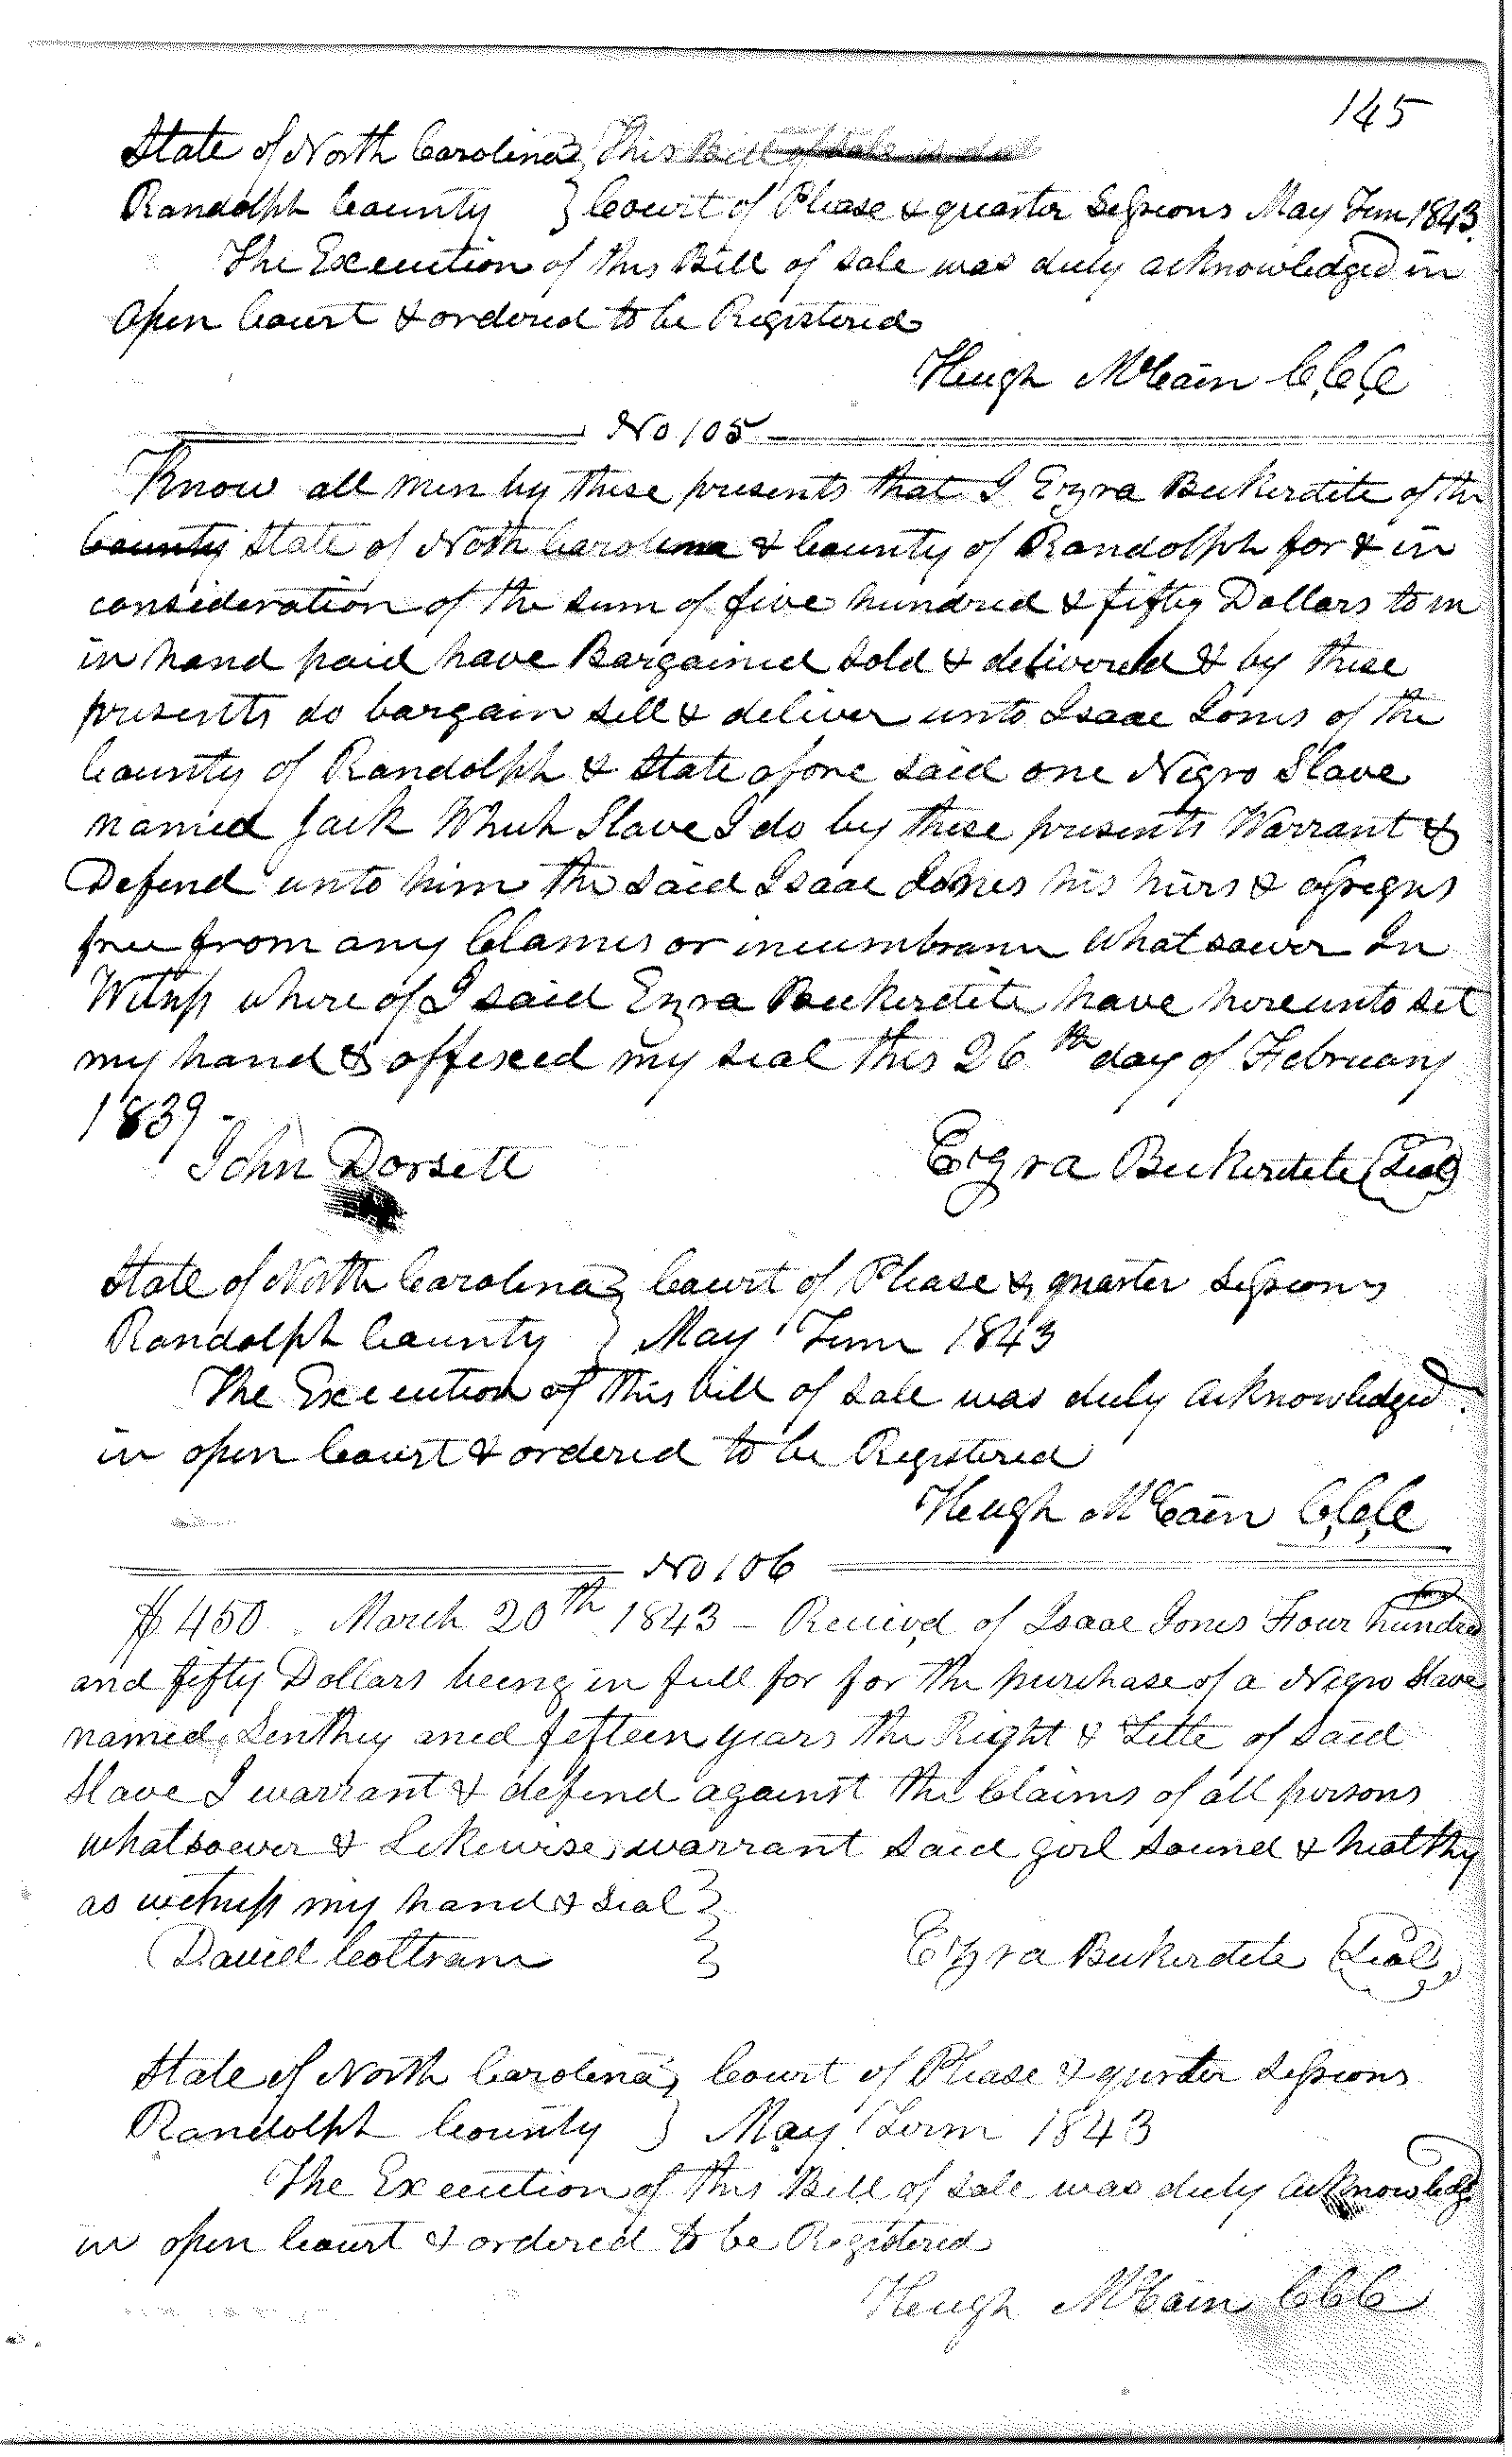 145
State of North Carolina } This Bill of Sale is dul
Randolph County } Court of Please & quarter Sessions May Term 1843
The Execution of this Bill of Sale was duly acknowledged in
Open Court & ordered to be Registered
Hugh McCain C,C,C
No 105
Know all men by these presents that I Ezra Beckerdite of the
County State of North Carolina & County of Randolph for & in
consideration of the sum of five hundred & fifty Dollars to m
in hand paid have Bargained Sold & delivered & by these
presents do bargain sell & deliver unto Isaac Jones of the
County of Randolph & State afore said one Negro Slave
named Jack Which Slave I do by these presents Warrant &
Defend unto him the said Isaac Jones his heirs & assegns
free from any Clames or incumbrance Whatsoever In
Witness where of I said Ezra Beckerdite have hereunto set
my hand & affixed my seal this 26th day of February
1839 -
John Dorsett
Ezra Beckerdite (Seal)
State of North Carolina } Court of Please & quarter Sessions
Randolph County } May Term 1843
The Execution of this bill of Sale was duly acknowledged
in open Court & ordered to be Registered
Hugh McCain C,C,C
No 106
$450. March 20th 1843 - Received of Isaac Jones Four hundred
and fifty Dollars being in full for for the purchase of a Negro Slave
named aned fifteen years the Right & Title of said
Slave I warrant & defend against the Claims of all persons
whatsoever & Likewise warrant said girl sound & healthy
as witness my hand & Seal }
Daniel Coltrane }
Ezra Beckerdite (Seal)
State of North Carolina } Court of Please & qurter Sessions
Randolph County } May Term 1843
The Execution of this Bill of Sale was duly Acknowledg
in open Court & ordered to be Registered
Hugh McCain CCC